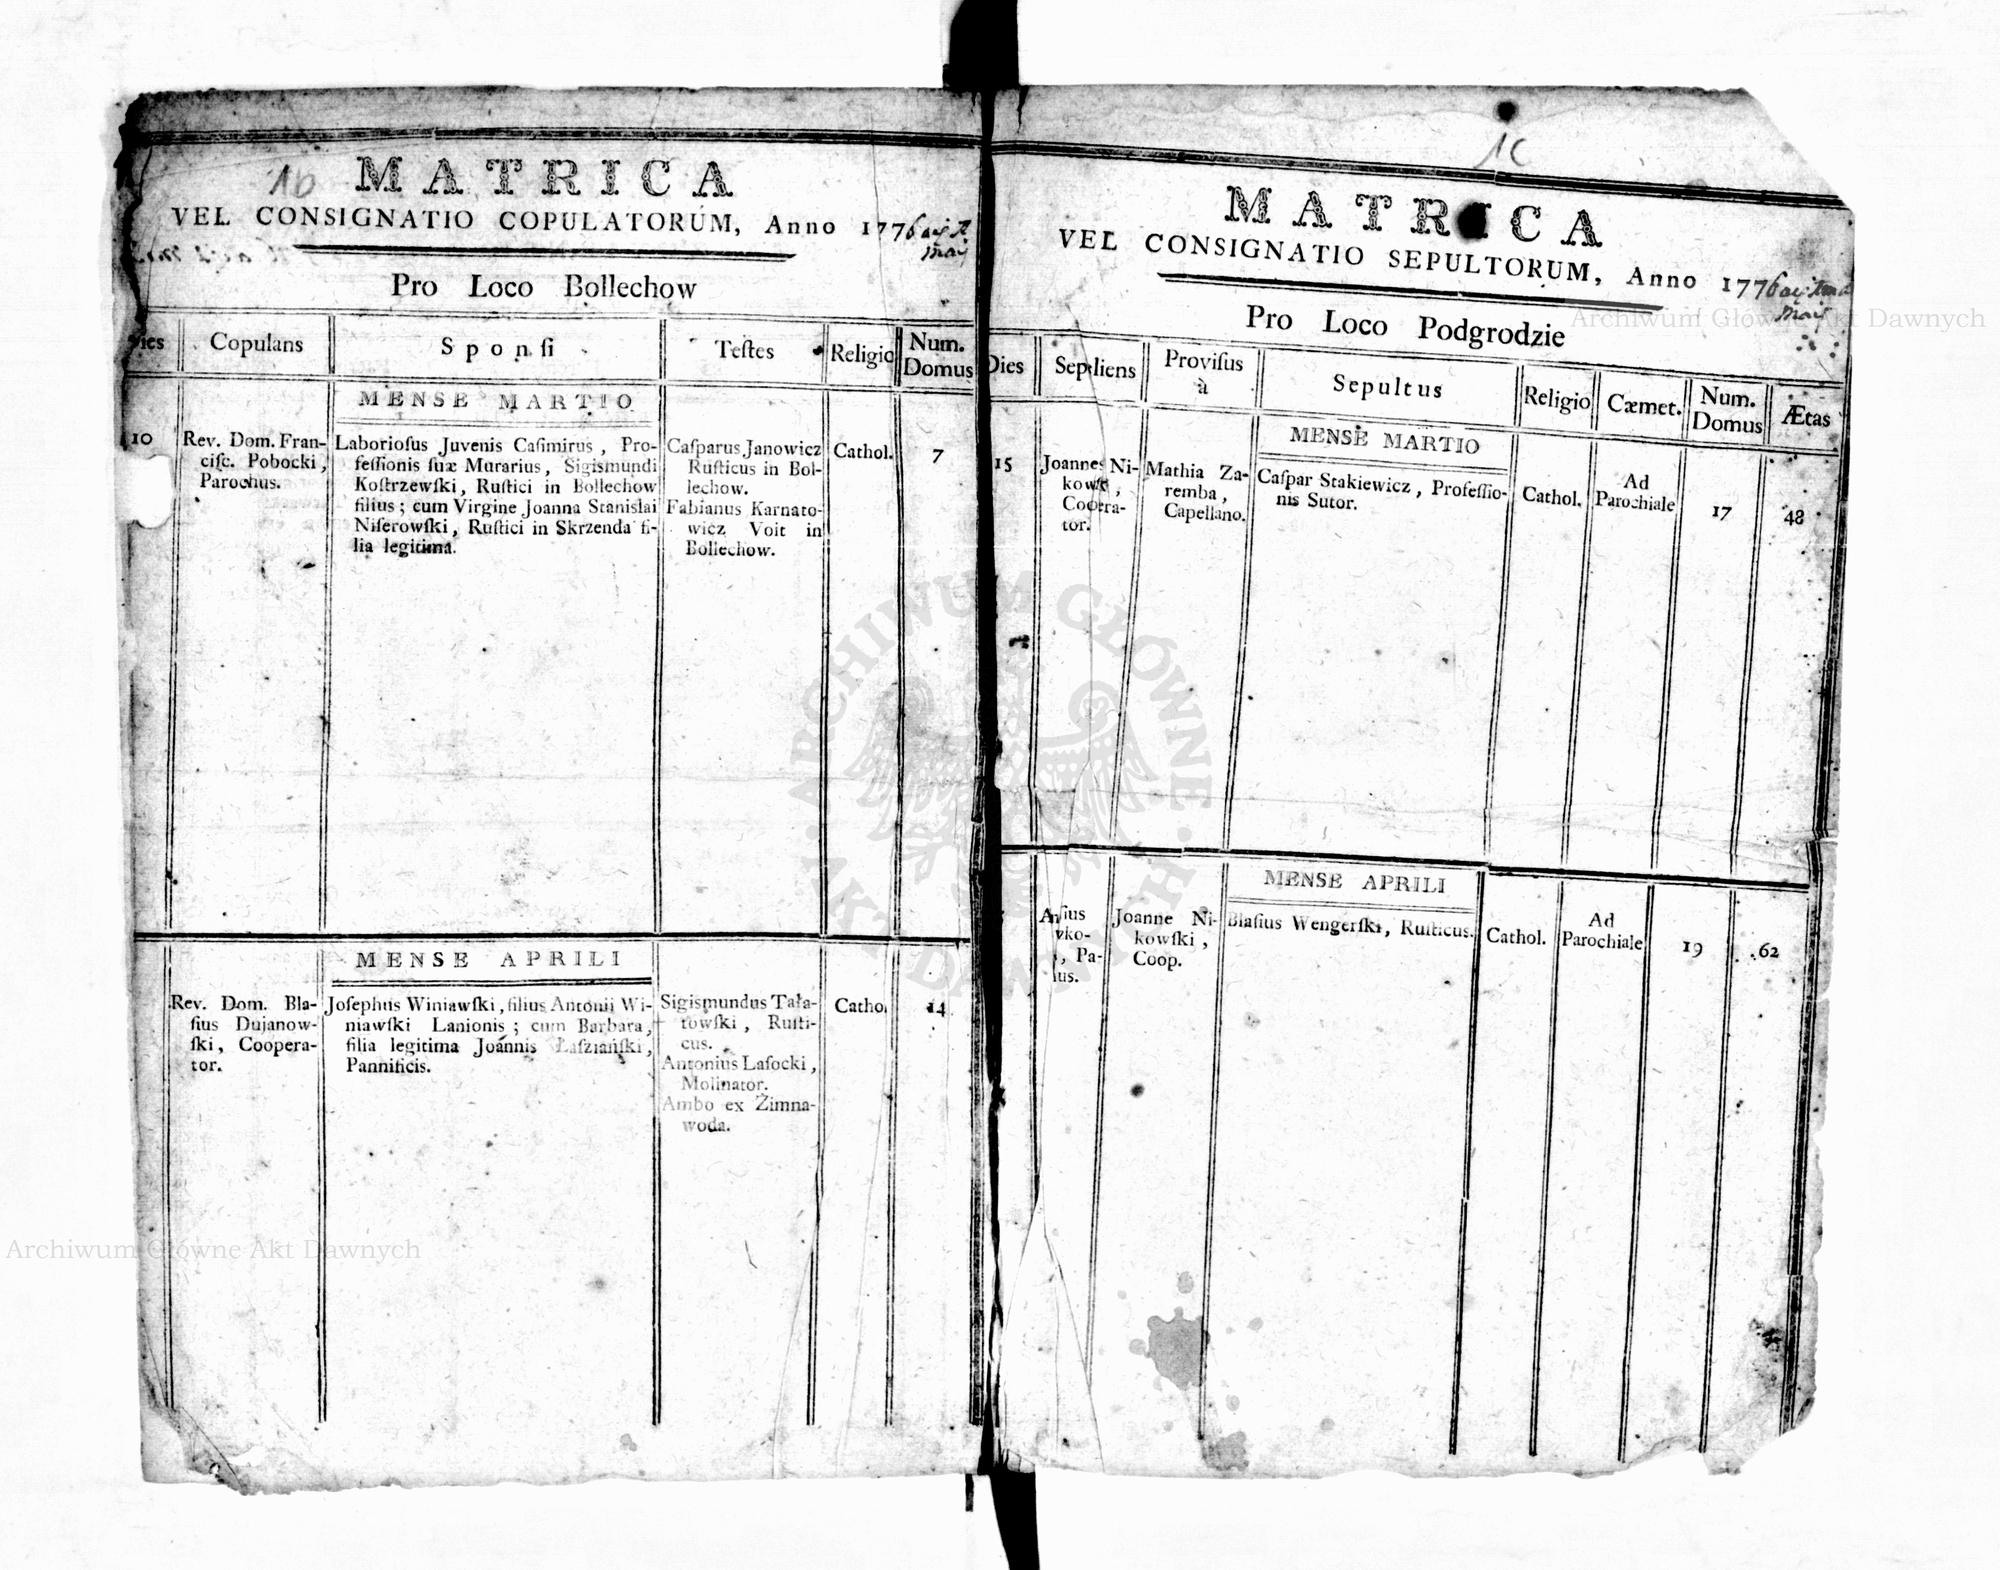 1b
MATRICA
VEL CONSIGNATIO COPULATORUM, Anno 1776
Pro Loco Bollechow
Dies Copulans Sponſi Teſtes Religio Num. Domus
MENSE MARTIO
10
Rev. Dom. Fran-
ciſc. Pobocki,
Parochus.
Laborioſus Juvenis Caſimirus, Pro-
feſſionis ſuæ Murarius, Sigismundi
Koſtrzewſki, Ruſtici in Bollechow
filius; cum Virgine Joanna Stanislai
Niſerowſki, Ruſtici in Skrzenda fi-
lia legitima.
Caſparus Janowicz
Ruſticus in Bol-
lechow.
Fabianus Karnato-
wicz Voit in
Bollechow.
Cathol.
7
MENSE APRILI
Rev. Dom. Bla-
ſius Dujanow-
ſki, Coopera-
tor.
Joſephus Winiawſki, filius Antonii Wi-
niawſki Lanionis; cum Barbara,
filia legitima Joánnis Łaſziańſki,
Pannificis.
Sigismundus Tała-
towſki, Ruſti-
cus.
Antonius Laſocki,
Molinator.
Ambo ex Zimna-
woda.
Cathol
14
1c
MATRICA
VEL CONSIGNATIO SEPULTORUM, Anno 1776
Pro Loco Podgrodzie
Dies Sepeliens Proviſus à Sepultus Religio Cæmet. Num. Domus Ætas
MENSE MARTIO
15
Joannes Ni-
kowſki,
Coopera-
tor.
Mathia Za-
remba,
Capellano.
Caſpar Stakiewicz, Profeſſio-
nis Sutor.
Cathol.
Ad
Parochiale
17
48
MENSE APRILI
ſius
ko-
, Pa-
us.
Joanne Ni-
kowſki,
Coop.
Blaſius Wengerſki, Ruſticus.
Cathol.
Ad
Parochiale
19
62
ARCHIWUM GŁÓWNE · AKT DAWNYCH ·
Archiwum Główne Akt Dawnych
Archiwum Główne Akt Dawnych